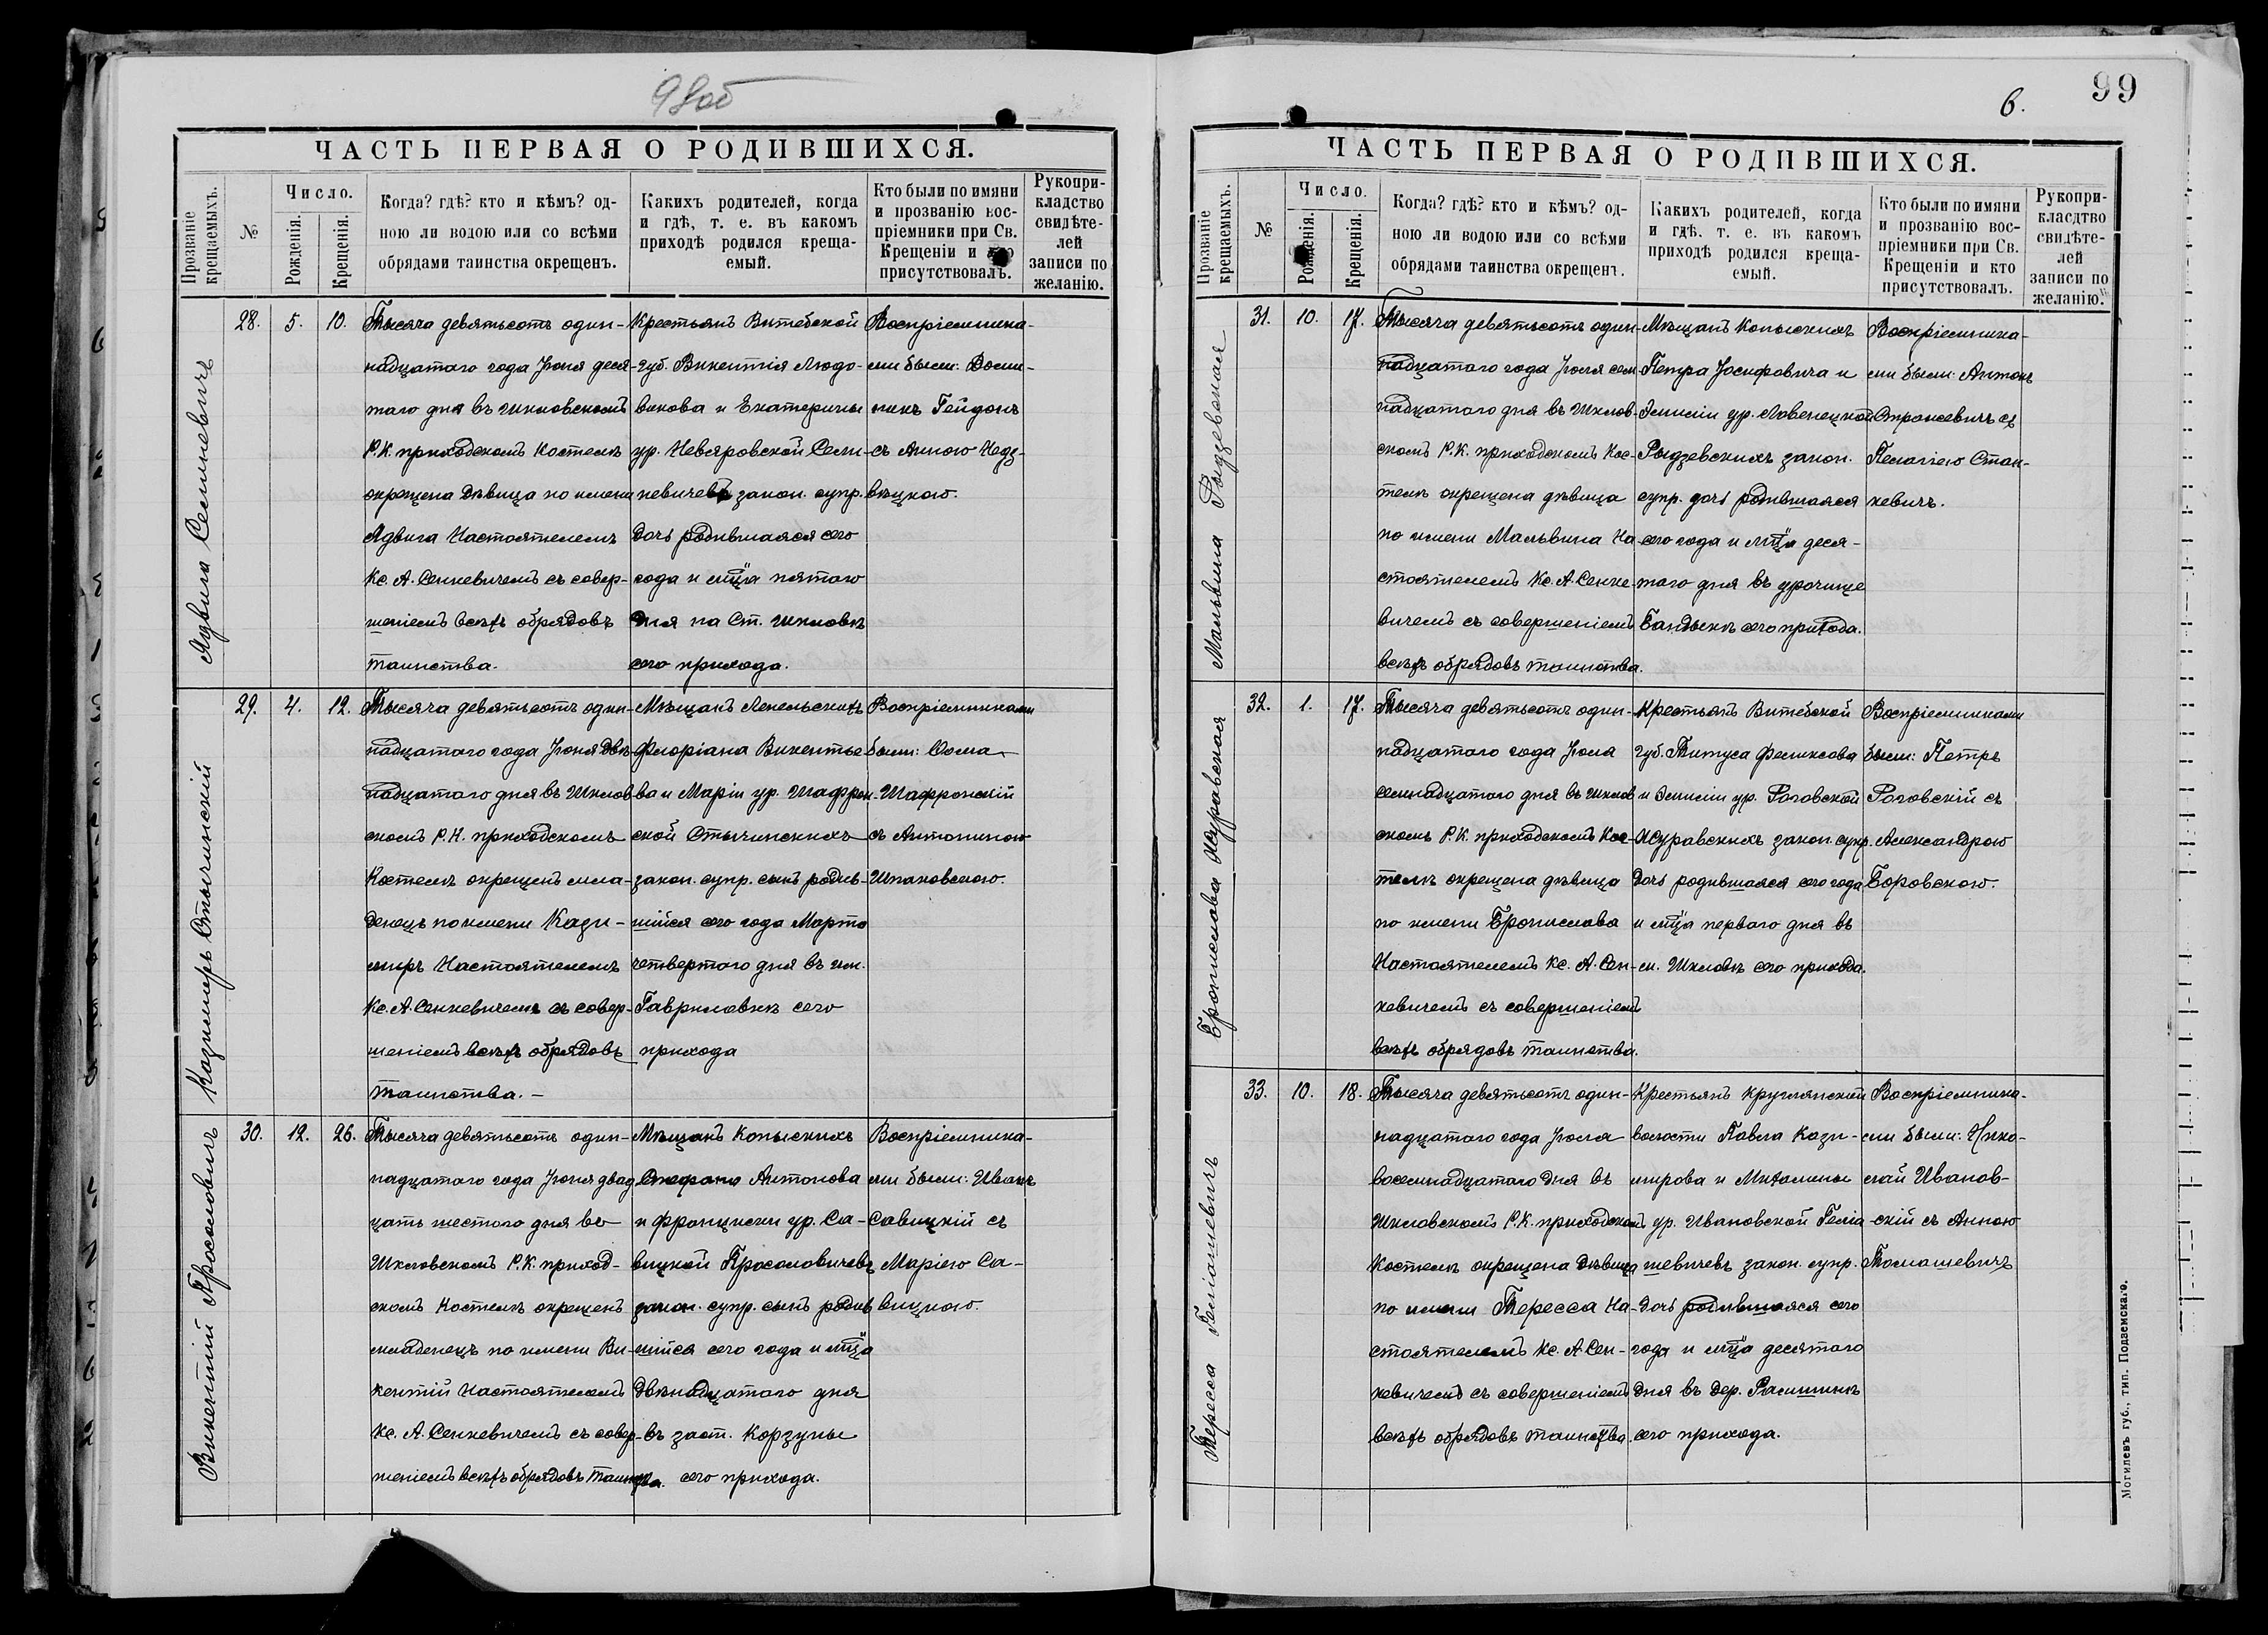 98об
ЧАСТЬ ПЕРВАЯ О РОДИВШИХСЯ.
Прозваніе крещаемыхъ.
№
Число.
Рожденія.
Крещенія.
Когда? гдѣ? кто и кѣмъ? од-
ною ли водою или со всѣми
обрядами таинства окрещенъ.
Какихъ родителей, когда
и гдѣ, т. е. въ какомъ
приходѣ родился креща-
емый.
Кто были по имяни
и прозванію вос-
пріемники при Св.
Крещеніи и кто
присутствовалъ.
Рукопри-
кладство
свидѣте-
лей
записи по
желанію.
Ядвига Селиневичъ
28.
5.
10.
Тысяча девятьсотъ один-
надцатаго года Іюня деся-
таго дня въ Шкловскомъ
Р.К. приходскомъ Костелѣ
окрещена дѣвица по имени
Ядвига Настоятелемъ
Кс. А. Сенкевичемъ съ совер-
шеніемъ всѣхъ обрядовъ
таинства.
Крестьянъ Витебской
губ. Викентія Людо-
викова и Екатерины
ур. Невяровской Сели-
невичевъ закон. супр.
дочь родившаяся сего
года и мца пятого
дня на Ст. Шкловѣ
сего прихода.
Воспріемника-
ми были: Доми-
никъ Гейдонъ
съ Анною Недз-
вѣцкою.
Казимиръ Стычинскій
29.
4.
12.
Тысяча девятьсотъ один-
надцатаго года Іюня двѣ-
надцатаго дня въ Шклов
скомъ Р.К. приходскомъ
Костелѣ окрещенъ мла-
денецъ по имени Кази-
миръ Настоятелемъ
Кс. А. Сенкевичемъ съ совер-
шеніемъ всѣхъ обрядовъ
таинства. –
Мѣщанъ Лепельскихъ
Флоріана Викентье
ва и Маріи ур. Шафрон-
ской Стычинскихъ
закон. супр. сынъ родив-
шійся сего года Марта
четвертого дня въ им.
Гавриловкѣ сего
прихода
Воспріемниками
были: Осма
Шафронскій
съ Антониною
Шпаковскою.
Викентій Просоловичъ
30.
12.
26.
Тысяча девятьсотъ один-
надцатаго года Іюня двад
цать шестого дня во
Шкловскомъ Р.К. приход-
скомъ Костелѣ окрещенъ
младенецъ по имени Ви-
кентій Настоятелемъ
Кс. А. Сенкевичемъ съ совер-
шеніемъ всѣхъ обрядовъ таинства.
Мѣщанъ Копыскихъ
Стефана Антонова
и Франциски ур. Са-
вицкой Просоловичевъ
закон. супр. сынъ родив
шійся сего года и мца
двѣнадцатаго дня
въ заст. Корзуны
сего прихода.
Воспріемника-
ми были: Иванъ
Савицкій съ
Маріею Са-
вицкою.
6.
99
ЧАСТЬ ПЕРВАЯ О РОДИВШИХСЯ.
Прозваніе крещаемыхъ.
№
Число.
Рожденія.
Крещенія.
Когда? гдѣ? кто и кѣмъ? од-
ною ли водою или со всѣми
обрядами таинства окрещенъ.
Какихъ родителей, когда
и гдѣ. т. е. въ какомъ
приходѣ родился креща-
емый.
Кто были по имяни
и прозванію вос-
пріемники при Св.
Крещеніи и кто
присутствовалъ.
Рукопри-
класдтво
свидѣте-
лей
записи по
желанію.
Мальвина Рыдзевская
31.
10.
17.
Тысяча девятьсотъ один-
надцатаго года Іюля сем
надцатаго дня въ Шклов-
скомъ Р.К. приходскомъ Кос-
телѣ окрещена дѣвица
по имени Мальвина На-
стоятелемъ Кс. А. Сенке-
вичемъ съ совершеніемъ
всѣхъ обрядовъ таинства.
Мѣщанъ Копыскихъ
Петра Іосифовича и
Эмиліи ур. Ловенецкой
Рыдзевскихъ закон.
супр. дочь родившаяся
сего года и мца деся-
таго дня въ урочище
Бандыкѣ сего прихода.
Воспріемника-
ми были: Антонъ
Стронсевичъ съ
Пелагіею Стан-
кевичъ.
Брониславa Журавская
32.
1.
17.
Тысяча девятьсотъ один-
надцатаго года Іюля
семнадцатаго дня въ Шклов
скомъ Р.К. приходскомъ Кос-
телѣ окрещена дѣвица
по имени Бронислава
Настоятелемъ Кс. А. Сен-
кевичемъ съ совершеніемъ
всѣхъ обрядовъ таинства.
Крестьянъ Витебской
губ. Титуса Феликсова
и Эмиліи ур. Роговской
Журавскихъ закон. супр.
дочь родившаяся сего года
и мца перваго дня въ
м. Шкловѣ сего прихода.
Воспріемниками
были: Петръ
Роговскій съ
Александрою
Боровскою.
Тересса Геліашевичъ
33.
10.
18.
Тысяча девятьсотъ один-
надцатаго года Іюля
восемнадцатаго дня въ
Шкловскомъ Р.К. приходскомъ
Костелѣ окрещена дѣвица
по имени Тересса На-
стоятелемъ Кс. А. Сен-
кевичемъ съ совершеніемъ
всѣхъ обрядовъ таинства.
Крестьянъ Круглянской
волости Павла Кази-
мирова и Михалины
ур. Ивановской Геліа-
шевичевъ закон. супр.
дочь родившаяся сего
года и мца десятаго
дня въ дер. Рашшикѣ
сего прихода.
Воспріемника-
ми были: Нико-
лай Иванов-
скій съ Анною
Томашевичъ
Могилевъ губ., тип. Подземскаго.